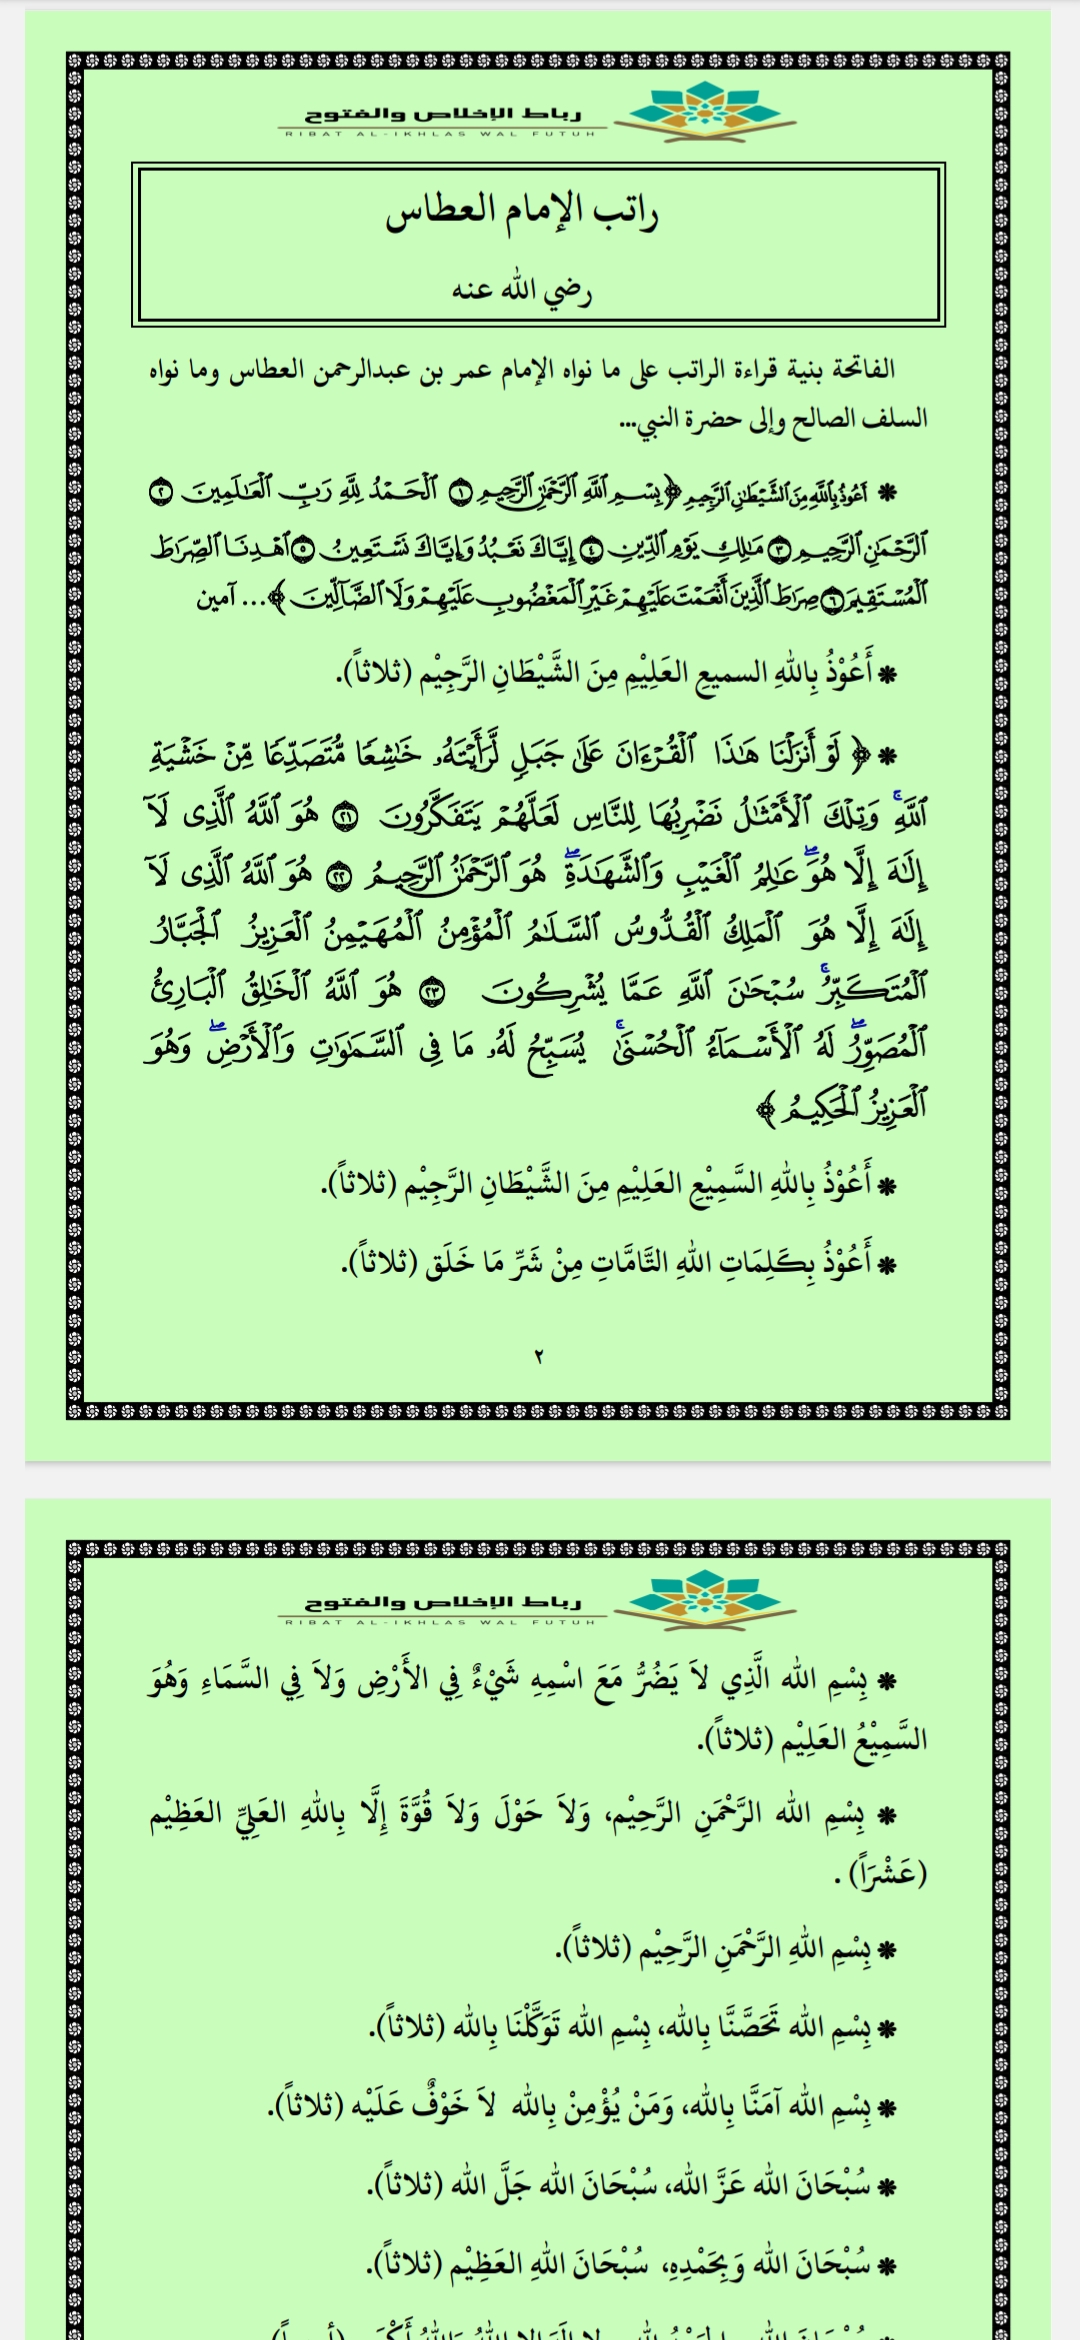 رباط الإخلاص والفتوح
RIBAT AL-IKHLAS WAL FUTUH
راتب الإمام العطاس
رضي الله عنه
الفاتحة بنية قراءة الراتب على ما نواه الإمام عمر بن عبدالرحمن العطاس وما نواه
السلف الصالح وإلى حضرة النبي...
* أَعُوذُ بِاللَّهِ مِنَ الشَّيْطَانِ الرَّجِيمِ ﴿بِسْمِ ٱللَّهِ ٱلرَّحْمَٰنِ ٱلرَّحِيمِ ۝١ ٱلْحَمْدُ لِلَّهِ رَبِّ ٱلْعَٰلَمِينَ ۝٢
ٱلرَّحْمَٰنِ ٱلرَّحِيمِ ۝٣ مَٰلِكِ يَوْمِ ٱلدِّينِ ۝٤ إِيَّاكَ نَعْبُدُ وَإِيَّاكَ نَسْتَعِينُ ۝٥ ٱهْدِنَا ٱلصِّرَٰطَ
ٱلْمُسْتَقِيمَ ۝٦ صِرَٰطَ ٱلَّذِينَ أَنْعَمْتَ عَلَيْهِمْ غَيْرِ ٱلْمَغْضُوبِ عَلَيْهِمْ وَلَا ٱلضَّآلِّينَ ﴾... آمين
* أَعُوْذُ بِاللهِ السميعِ العَلِيْمِ مِنَ الشَّيْطَانِ الرَّجِيْم (ثلاثاً).
* ﴿ لَوْ أَنزَلْنَا هَٰذَا ٱلْقُرْءَانَ عَلَىٰ جَبَلٍ لَّرَأَيْتَهُۥ خَٰشِعًا مُّتَصَدِّعًا مِّنْ خَشْيَةِ
ٱللَّهِ ۚ وَتِلْكَ ٱلْأَمْثَٰلُ نَضْرِبُهَا لِلنَّاسِ لَعَلَّهُمْ يَتَفَكَّرُونَ ۝٢١ هُوَ ٱللَّهُ ٱلَّذِى لَآ
إِلَٰهَ إِلَّا هُوَ ۖ عَٰلِمُ ٱلْغَيْبِ وَٱلشَّهَٰدَةِ ۖ هُوَ ٱلرَّحْمَٰنُ ٱلرَّحِيمُ ۝٢٢ هُوَ ٱللَّهُ ٱلَّذِى لَآ
إِلَٰهَ إِلَّا هُوَ ٱلْمَلِكُ ٱلْقُدُّوسُ ٱلسَّلَٰمُ ٱلْمُؤْمِنُ ٱلْمُهَيْمِنُ ٱلْعَزِيزُ ٱلْجَبَّارُ
ٱلْمُتَكَبِّرُ ۚ سُبْحَٰنَ ٱللَّهِ عَمَّا يُشْرِكُونَ ۝٢٣ هُوَ ٱللَّهُ ٱلْخَٰلِقُ ٱلْبَارِئُ
ٱلْمُصَوِّرُ ۖ لَهُ ٱلْأَسْمَآءُ ٱلْحُسْنَىٰ ۚ يُسَبِّحُ لَهُۥ مَا فِى ٱلسَّمَٰوَٰتِ وَٱلْأَرْضِ ۖ وَهُوَ
ٱلْعَزِيزُ ٱلْحَكِيمُ ﴾
* أَعُوْذُ بِاللهِ السَّمِيْعِ العَلِيْمِ مِنَ الشَّيْطَانِ الرَّجِيْم (ثلاثاً).
* أَعُوْذُ بِكَلِمَاتِ اللهِ التَّامَّاتِ مِنْ شَرِّ مَا خَلَق (ثلاثاً).
٢
رباط الإخلاص والفتوح
RIBAT AL-IKHLAS WAL FUTUH
* بِسْمِ الله الَّذِي لاَ يَضُرُّ مَعَ اسْمِهِ شَيْءٌ فِي الأَرْضِ وَلاَ فِي السَّمَاءِ وَهُوَ
السَّمِيْعُ العَلِيْم (ثلاثاً).
* بِسْمِ الله الرَّحْمَنِ الرَّحِيْم، وَلاَ حَوْلَ وَلاَ قُوَّةَ إِلَّا بِاللهِ العَلِيِّ العَظِيْم
(عَشْرَاً) .
* بِسْمِ اللهِ الرَّحْمَنِ الرَّحِيْم (ثلاثاً).
* بِسْمِ الله تَحَصَّنَّا بِالله، بِسْمِ الله تَوَكَّلْنَا بِالله (ثلاثاً).
* بِسْمِ الله آمَنَّا بِالله، وَمَنْ يُؤْمِنْ بِالله لاَ خَوْفٌ عَلَيْه (ثلاثاً).
* سُبْحَانَ الله عَزَّ الله، سُبْحَانَ الله جَلَّ الله (ثلاثاً).
* سُبْحَانَ الله وَبِحَمْدِهِ، سُبْحَانَ اللهِ العَظِيْم (ثلاثاً).